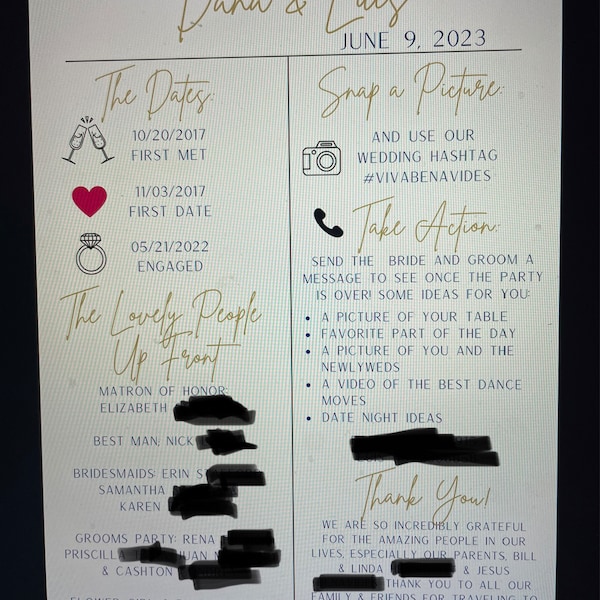 Dana & Luis
JUNE 9, 2023
The Dates:
10/20/2017
FIRST MET
11/03/2017
FIRST DATE
05/21/2022
ENGAGED
The Lovely People
Up Front
MATRON OF HONOR:
ELIZABETH
BEST MAN: NICK
BRIDESMAIDS: ERIN S
SAMANTHA
KAREN
GROOMS PARTY: RENA
PRISCILL JUAN
& CASHTON
Snap a Picture:
AND USE OUR
WEDDING HASHTAG
#VIVABENAVIDES
Take Action:
SEND THE BRIDE AND GROOM A
MESSAGE TO SEE ONCE THE PARTY
IS OVER! SOME IDEAS FOR YOU:
• A PICTURE OF YOUR TABLE
• FAVORITE PART OF THE DAY
• A PICTURE OF YOU AND THE
NEWLYWEDS
• A VIDEO OF THE BEST DANCE
MOVES
• DATE NIGHT IDEAS
Thank You!
WE ARE SO INCREDIBLY GRATEFUL
FOR THE AMAZING PEOPLE IN OUR
LIVES, ESPECIALLY OUR PARENTS, BILL
& LINDA & JESUS
THANK YOU TO ALL OUR
FAMILY & FRIENDS FOR TRAVELING TO